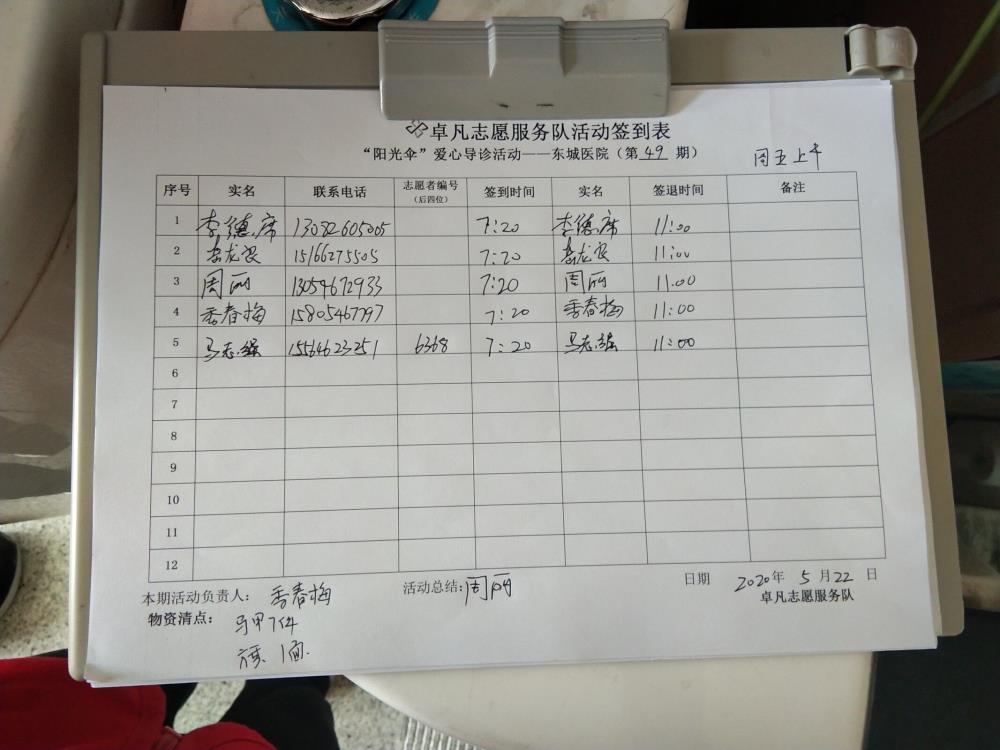 卓凡志愿服务队活动签到表
“阳光伞”爱心导诊活动——东城医院（第 49 期）
周五上午
序号 实名 联系电话 志愿者编号（后四位） 签到时间 实名 签退时间 备注
1 李德席 13082605005 7:20 李德席 11:00
2 龙良 15166275505 7:20 龙良 11:00
3 周丽 13054672933 7:20 周丽 11:00
4 季春梅 15805467797 7:20 季春梅 11:00
5 马志强 15564623251 6368 7:20 马志强 11:00
6
7
8
9
10
11
12
本期活动负责人： 季春梅 活动总结: 周丽 日期 2020年 5 月 22 日
卓凡志愿服务队
物资清点： 马甲7件
旗 1面.